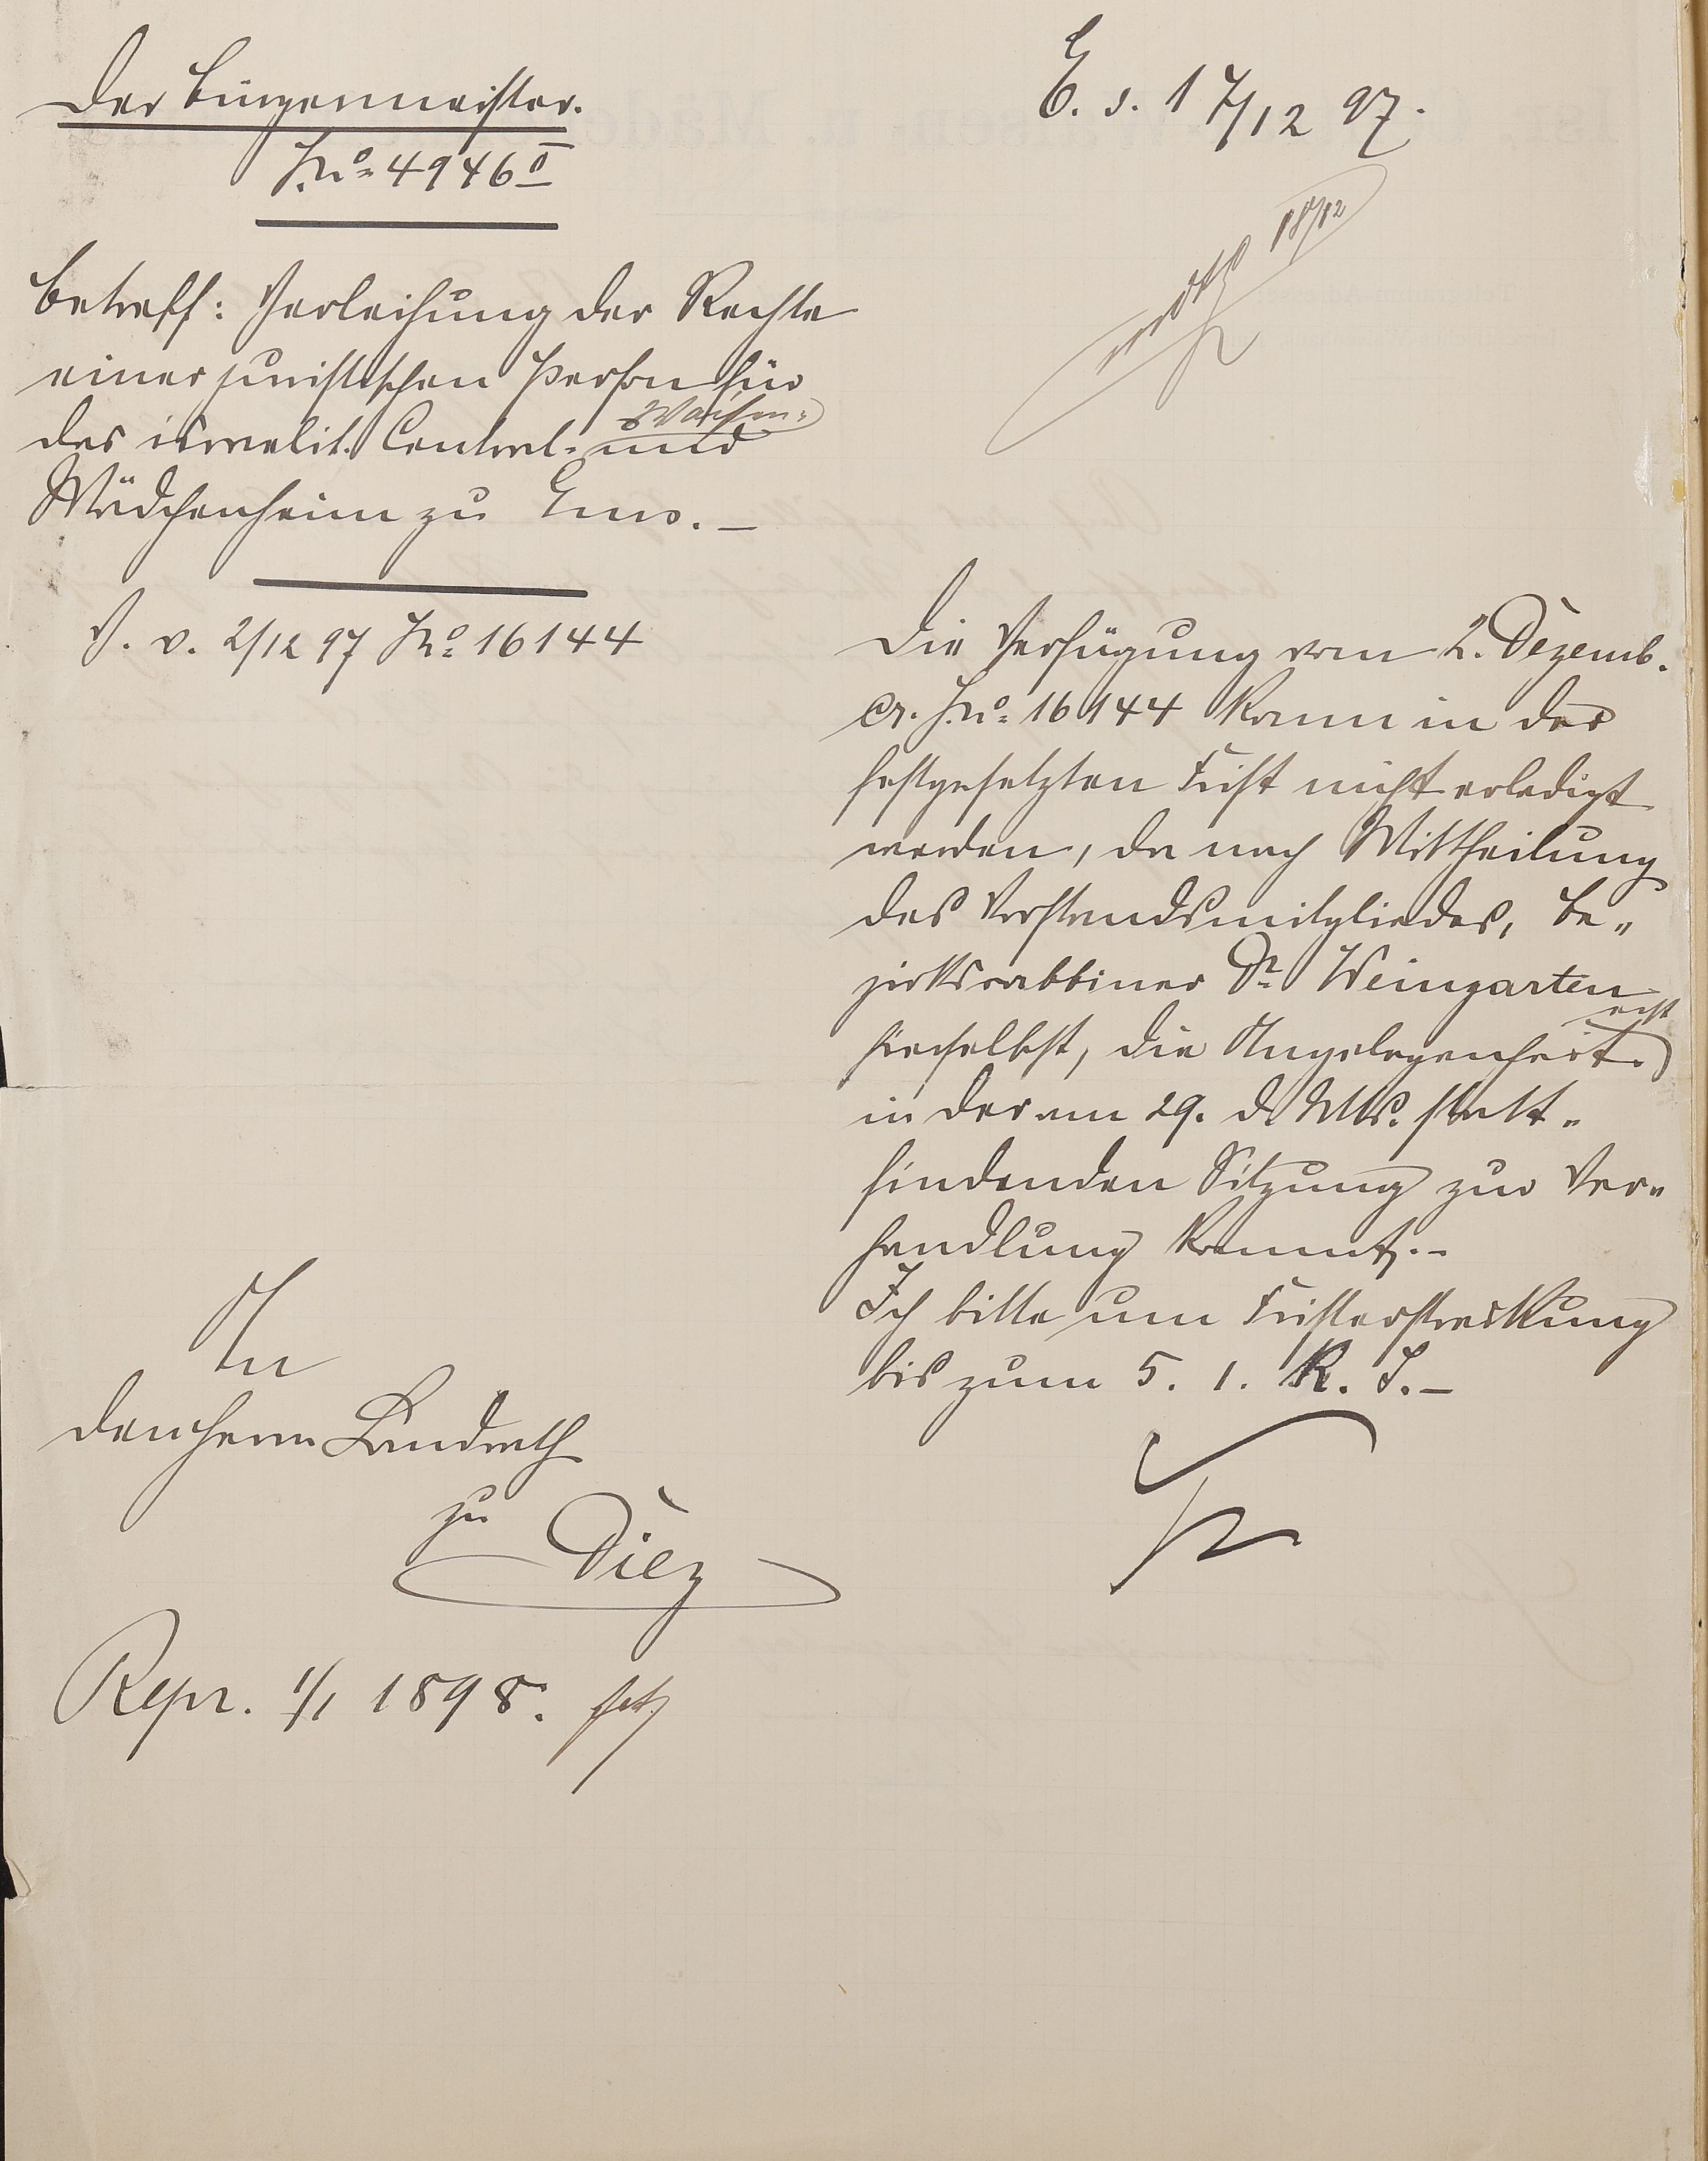 Der Bürgermeister.
J.No. 4946 II
Betreff: Verleihung der Rechte
einer juristischen Person für
das israelit. Central- Waisen-
und
Mädchenheim zu Ems. –
V. v. 2/12 97 No. 16144
E. s. 17/12 97.
18/12
Die Verfügung vom 2. Dezemb.
cr. J.No. 16144 kann in der
festgesetzten Frist nicht erledigt
werden, da nach Mittheilung
des Vorstandsmitgliedes, Be-
zirksrabbiner Dr. Weingarten
hierselbst, die Angelegenheit erst
in der am 29. d. Mts. statt-
findenden Sitzung zur Ver-
handlung kommt. –
Ich bitte um Fristerstreckung
bis zum 5. 1. K. J. –
An
den Herrn Landrath
zu
Diez
Repr. 1/1 1898.